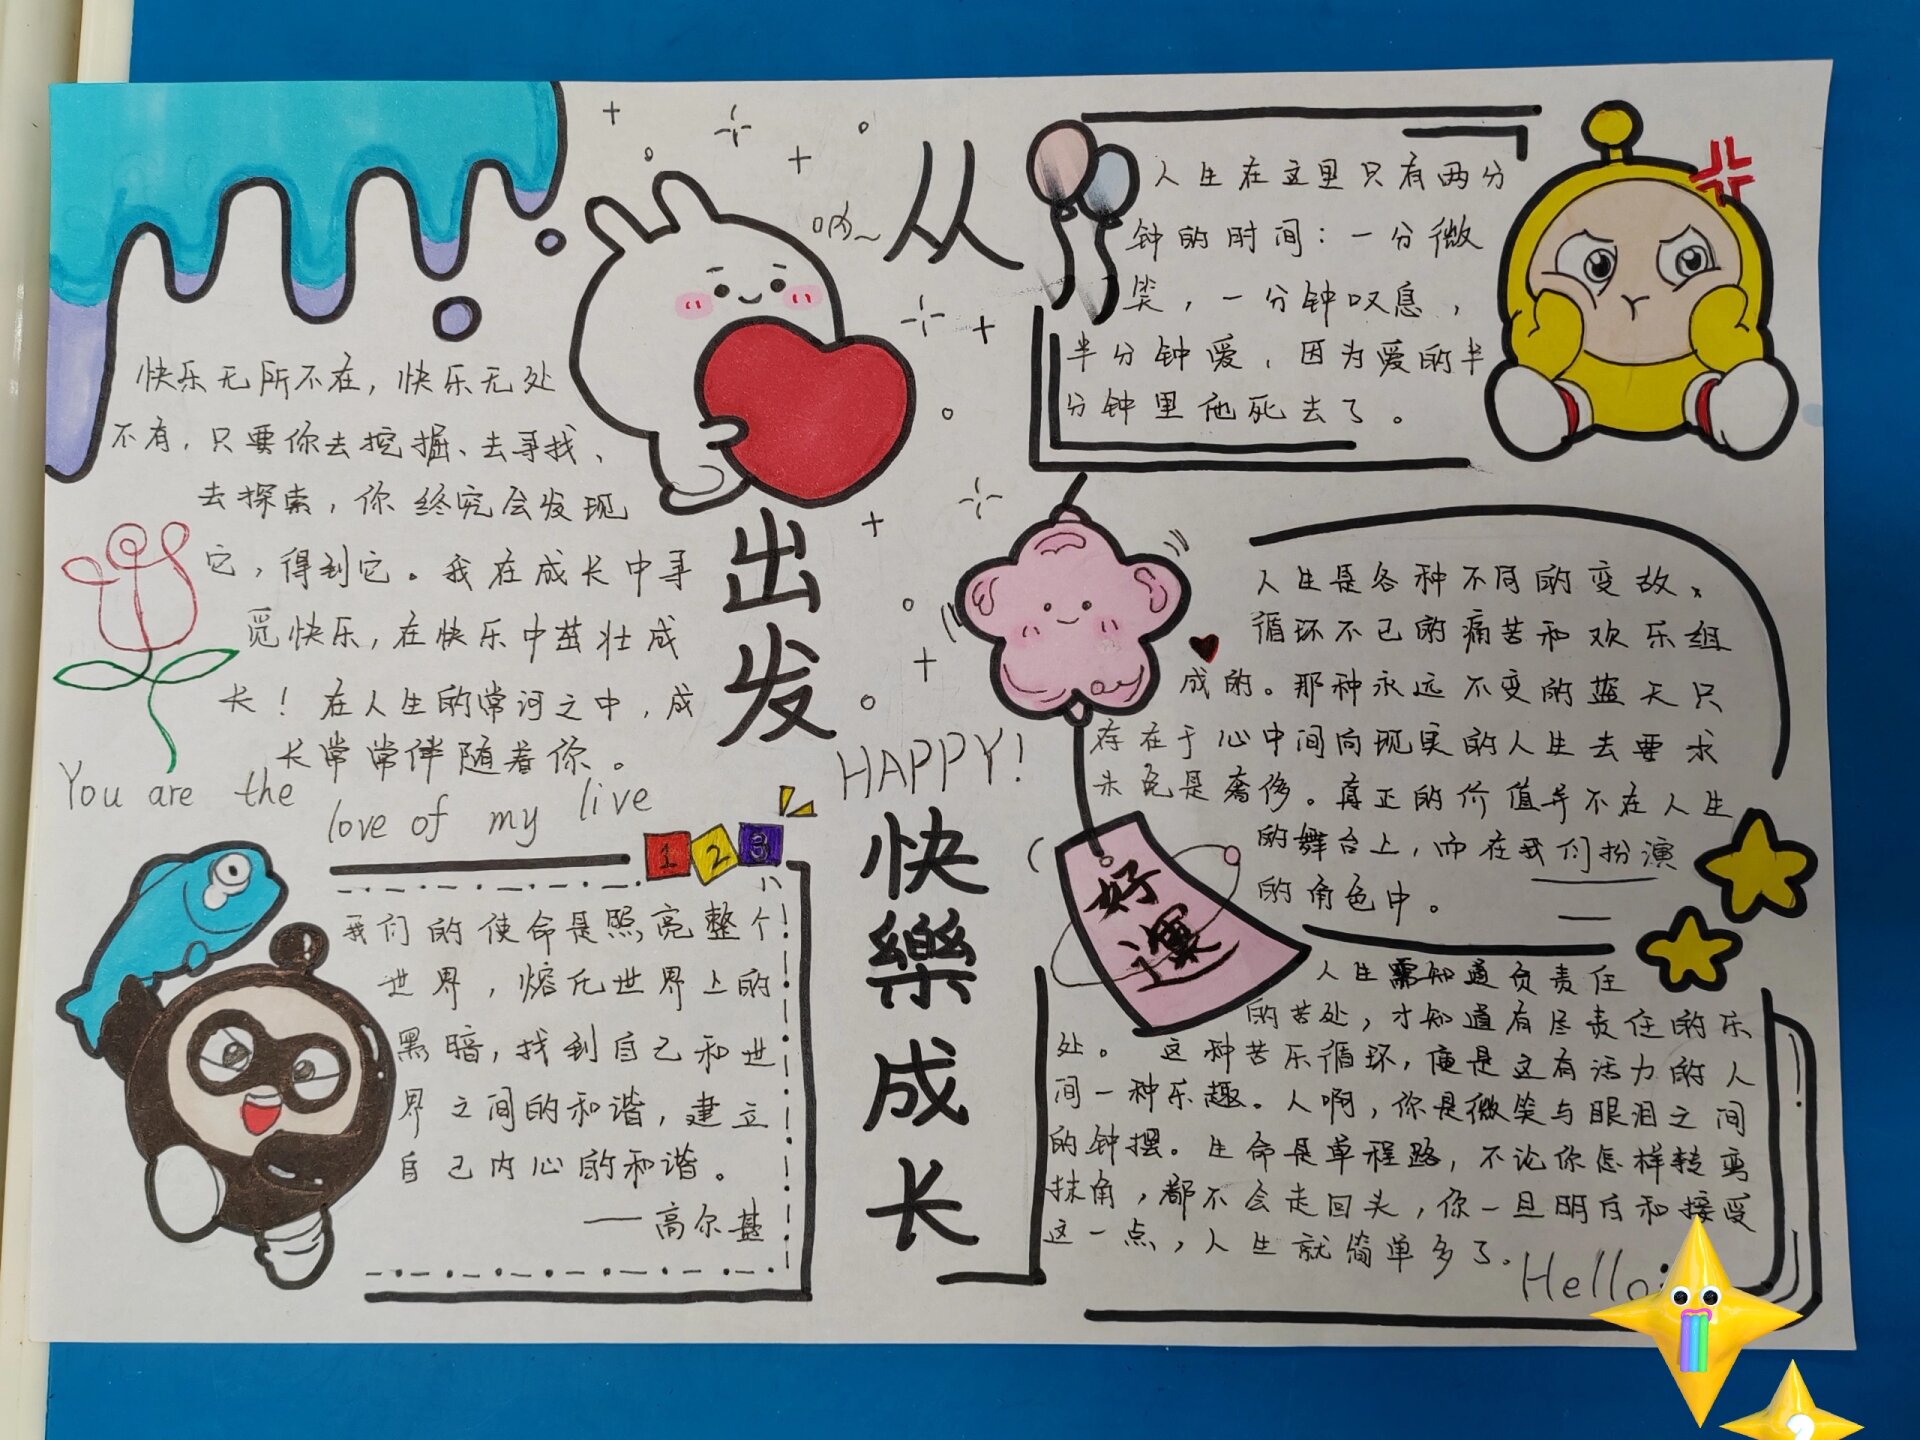 从
出
发
快
樂
成
长
HAPPY!
快乐无所不在，快乐无处
不有，只要你去挖掘、去寻找、
去探索，你终究会发现
它，得到它。我在成长中寻
觅快乐，在快乐中茁壮成
长！在人生的常河之中，成
长常常伴随着你。
You are the
love of my live
1 2 3
我们的使命是照亮整个
世界，熔化世界上的
黑暗，找到自己和世
界之间的和谐，建立
自己内心的和谐。
——高尔基
人生在这里只有两分
钟的时间：一分微
笑，一分钟叹息，
半分钟爱，因为爱的半
分钟里他死去了。
人生是各种不同的变故、
循环不已的痛苦和欢乐组
成的。那种永远不变的蓝天只
存在于心中间向现实的人生去要求
未免是奢侈。真正的价值并不在人生
的舞台上，而在我们扮演
的角色中。
好
運
人生需知道负责任
的苦处，才知道有尽责任的乐
处。这种苦乐循环，便是这有活力的人
间一种乐趣。人啊，你是微笑与眼泪之间
的钟摆。生命是单程路，不论你怎样转弯
抹角，都不会走回头，你一旦明白和接受
这一点，人生就简单多了。
Hello